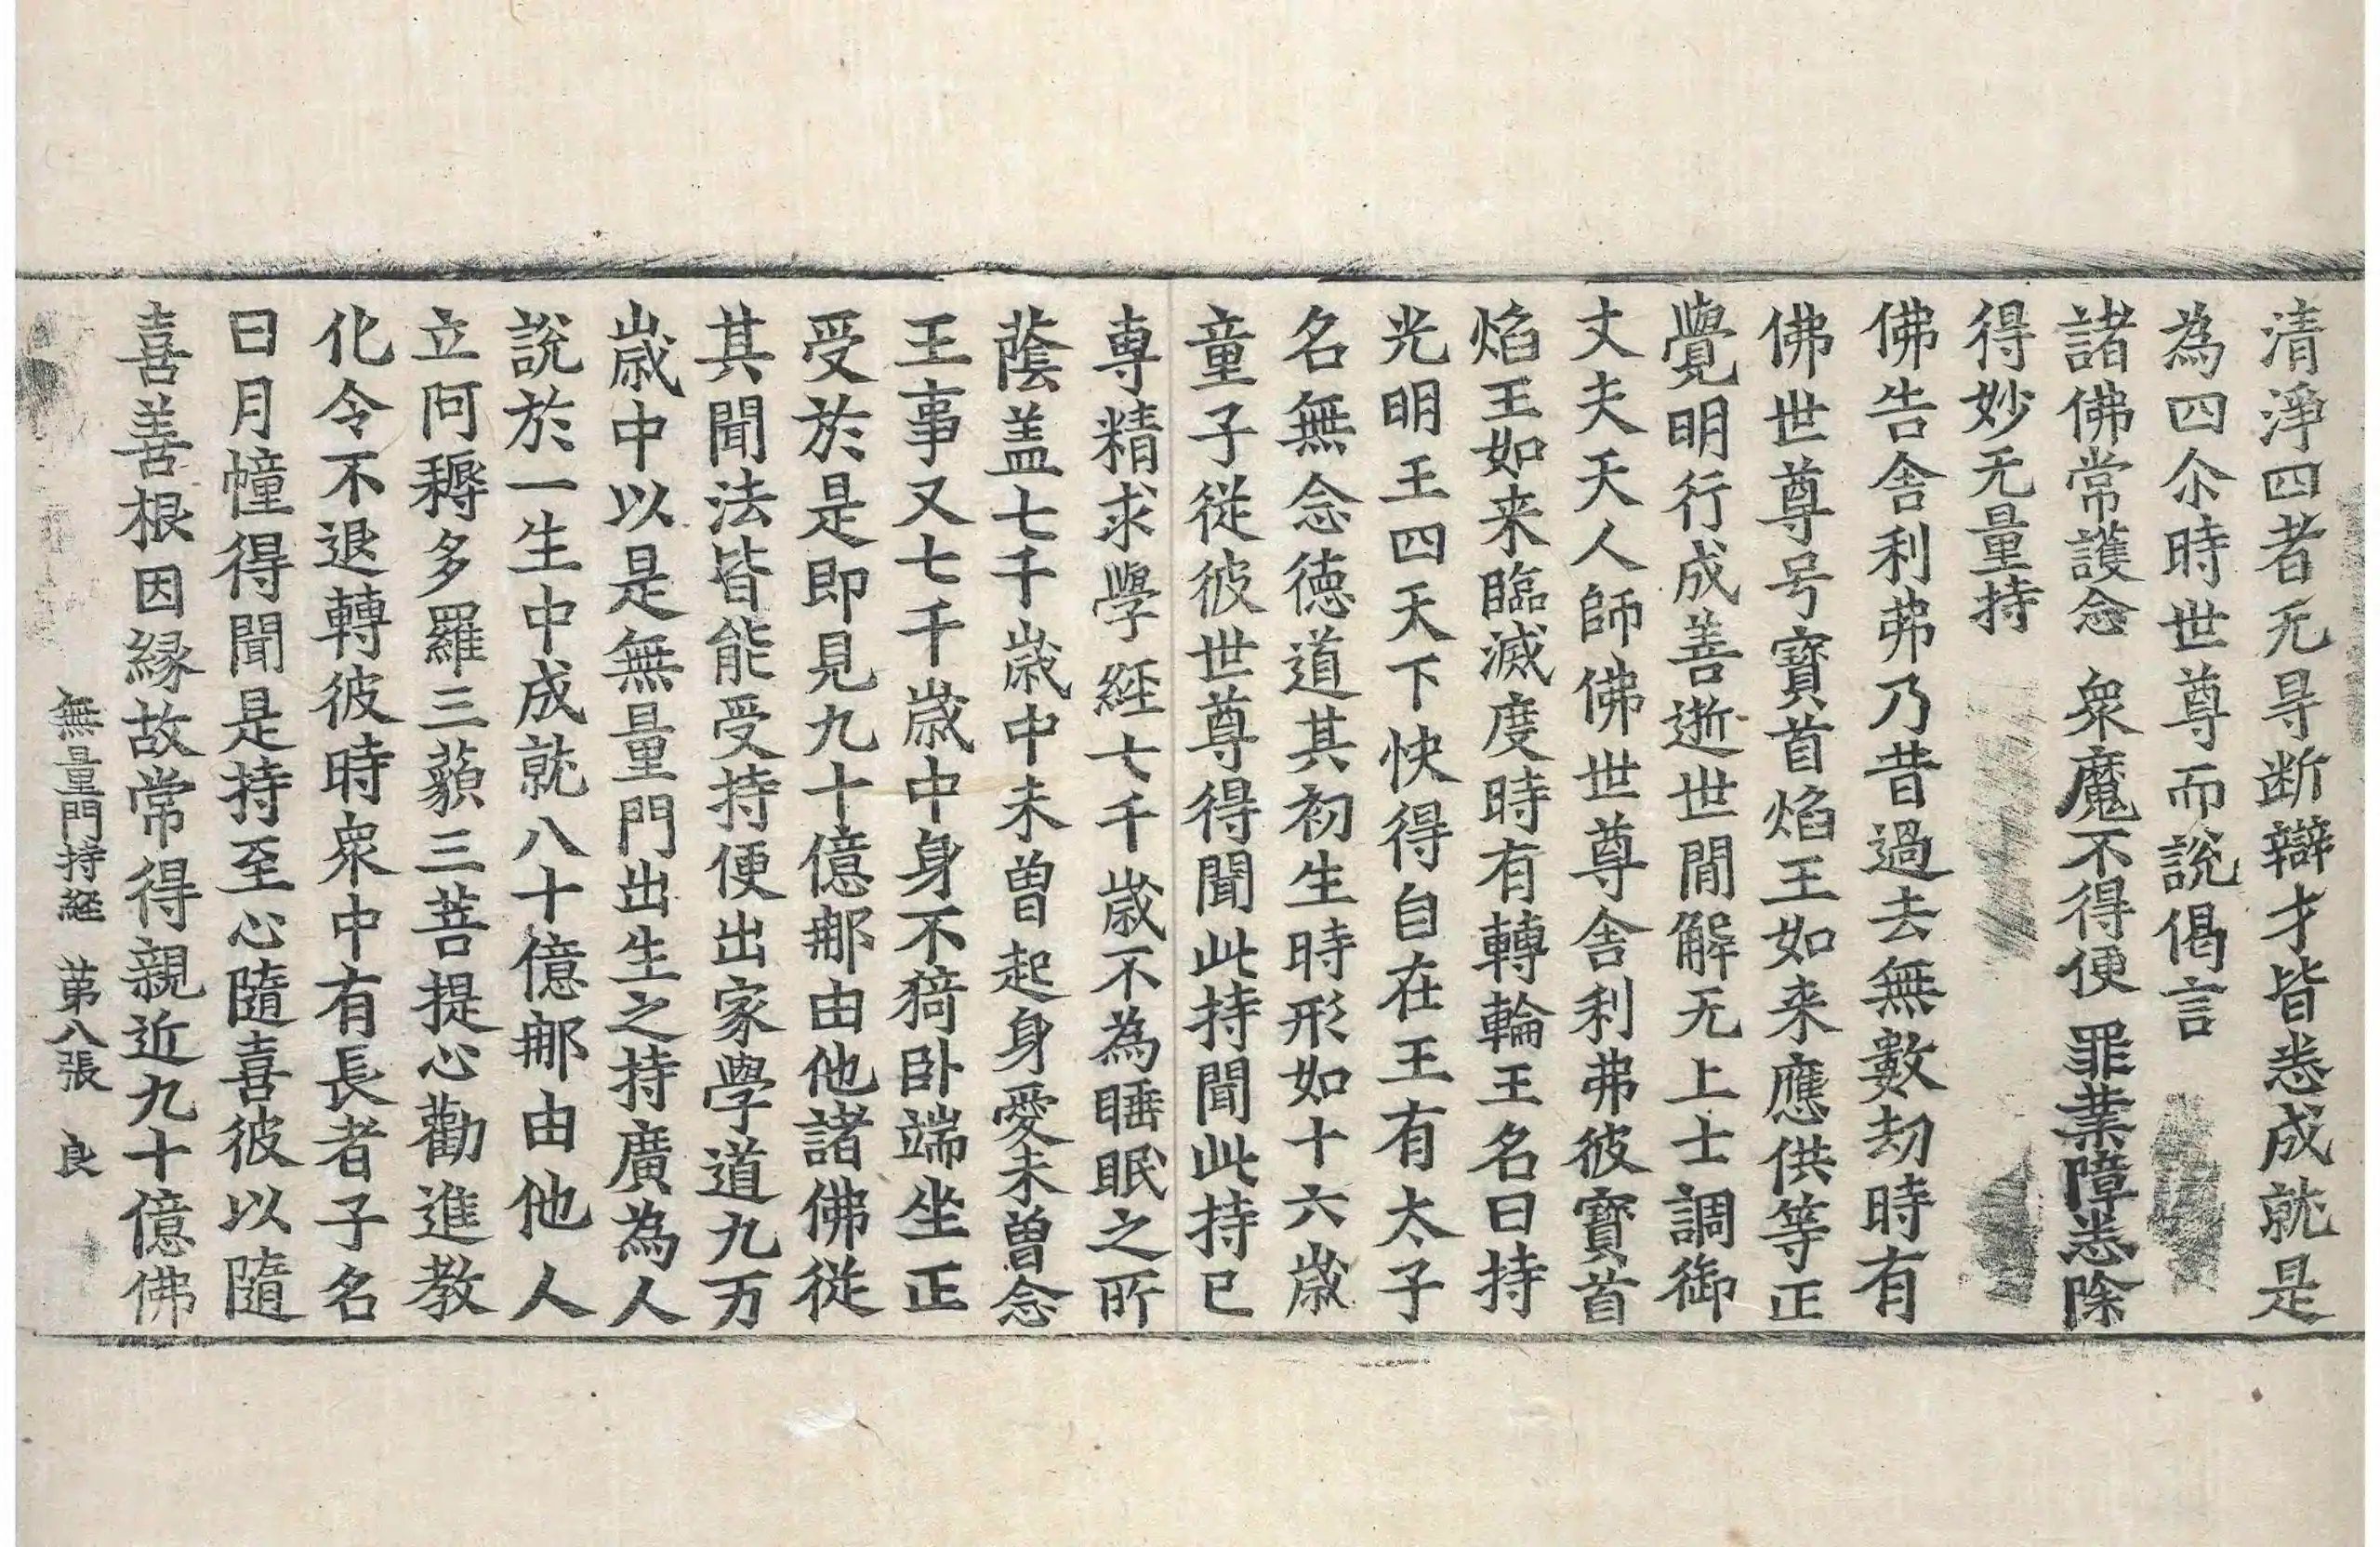 清淨四者无㝵断辯才皆悉成就是
為四尒時世尊而說偈言
諸佛常護念 衆魔不得便 罪業障悉除
得妙无量持
佛告舎利弗乃昔過去無數劫時有
佛世尊号寶首焰王如来應供等正
覺明行成善逝世間解无上士調御
丈夫天人師佛世尊舎利弗彼寶首
焰王如来臨滅度時有轉輪王名曰持
光明王四天下快得自在王有太子
名無念德道其初生時形如十六歲
童子從彼世尊得聞此持聞此持已
専精求學経七千歲不為睡眠之所
蔭盖七千歲中未曾起身愛未曾念
王事又七千歲中身不猗卧端坐正
受於是即見九十億那由他諸佛從
其聞法皆能受持便出家學道九万
歲中以是無量門出生之持廣為人
說於一生中成就八十億那由他人
立阿耨多羅三藐三菩提心勸進教
化令不退轉彼時衆中有長者子名
曰月幢得聞是持至心隨喜彼以隨
喜善根因縁故常得親近九十億佛
無量門持経 第八張 良